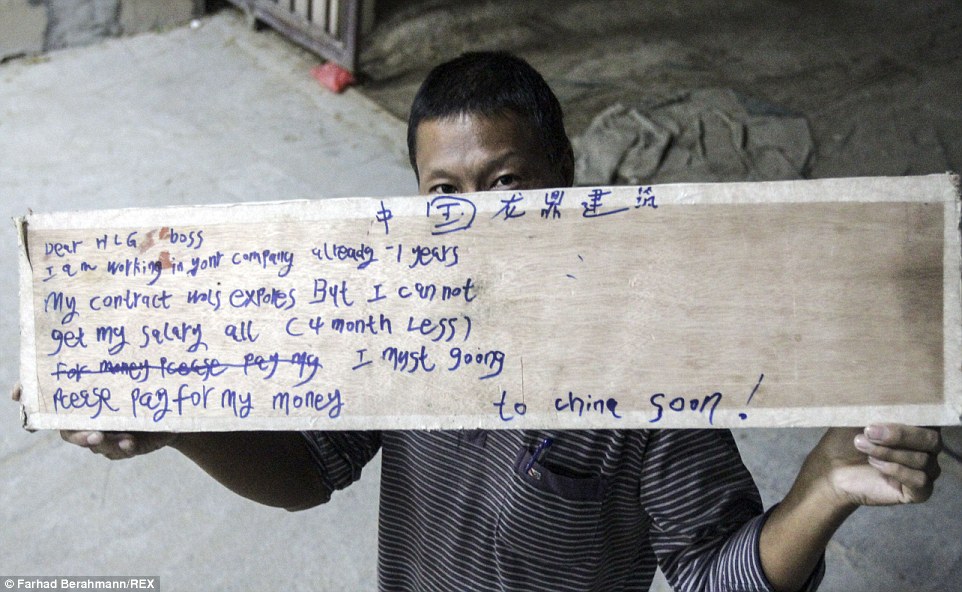 中国龙鼎建筑
Dear HLG boss
I am working in yonr company already -1 years
My contract wolj expores But I can not
get my salary all (4 month Less)
For money Please pay my I myst goong
Please pay for my money to china soon!
© Farhad Berahmann/REX